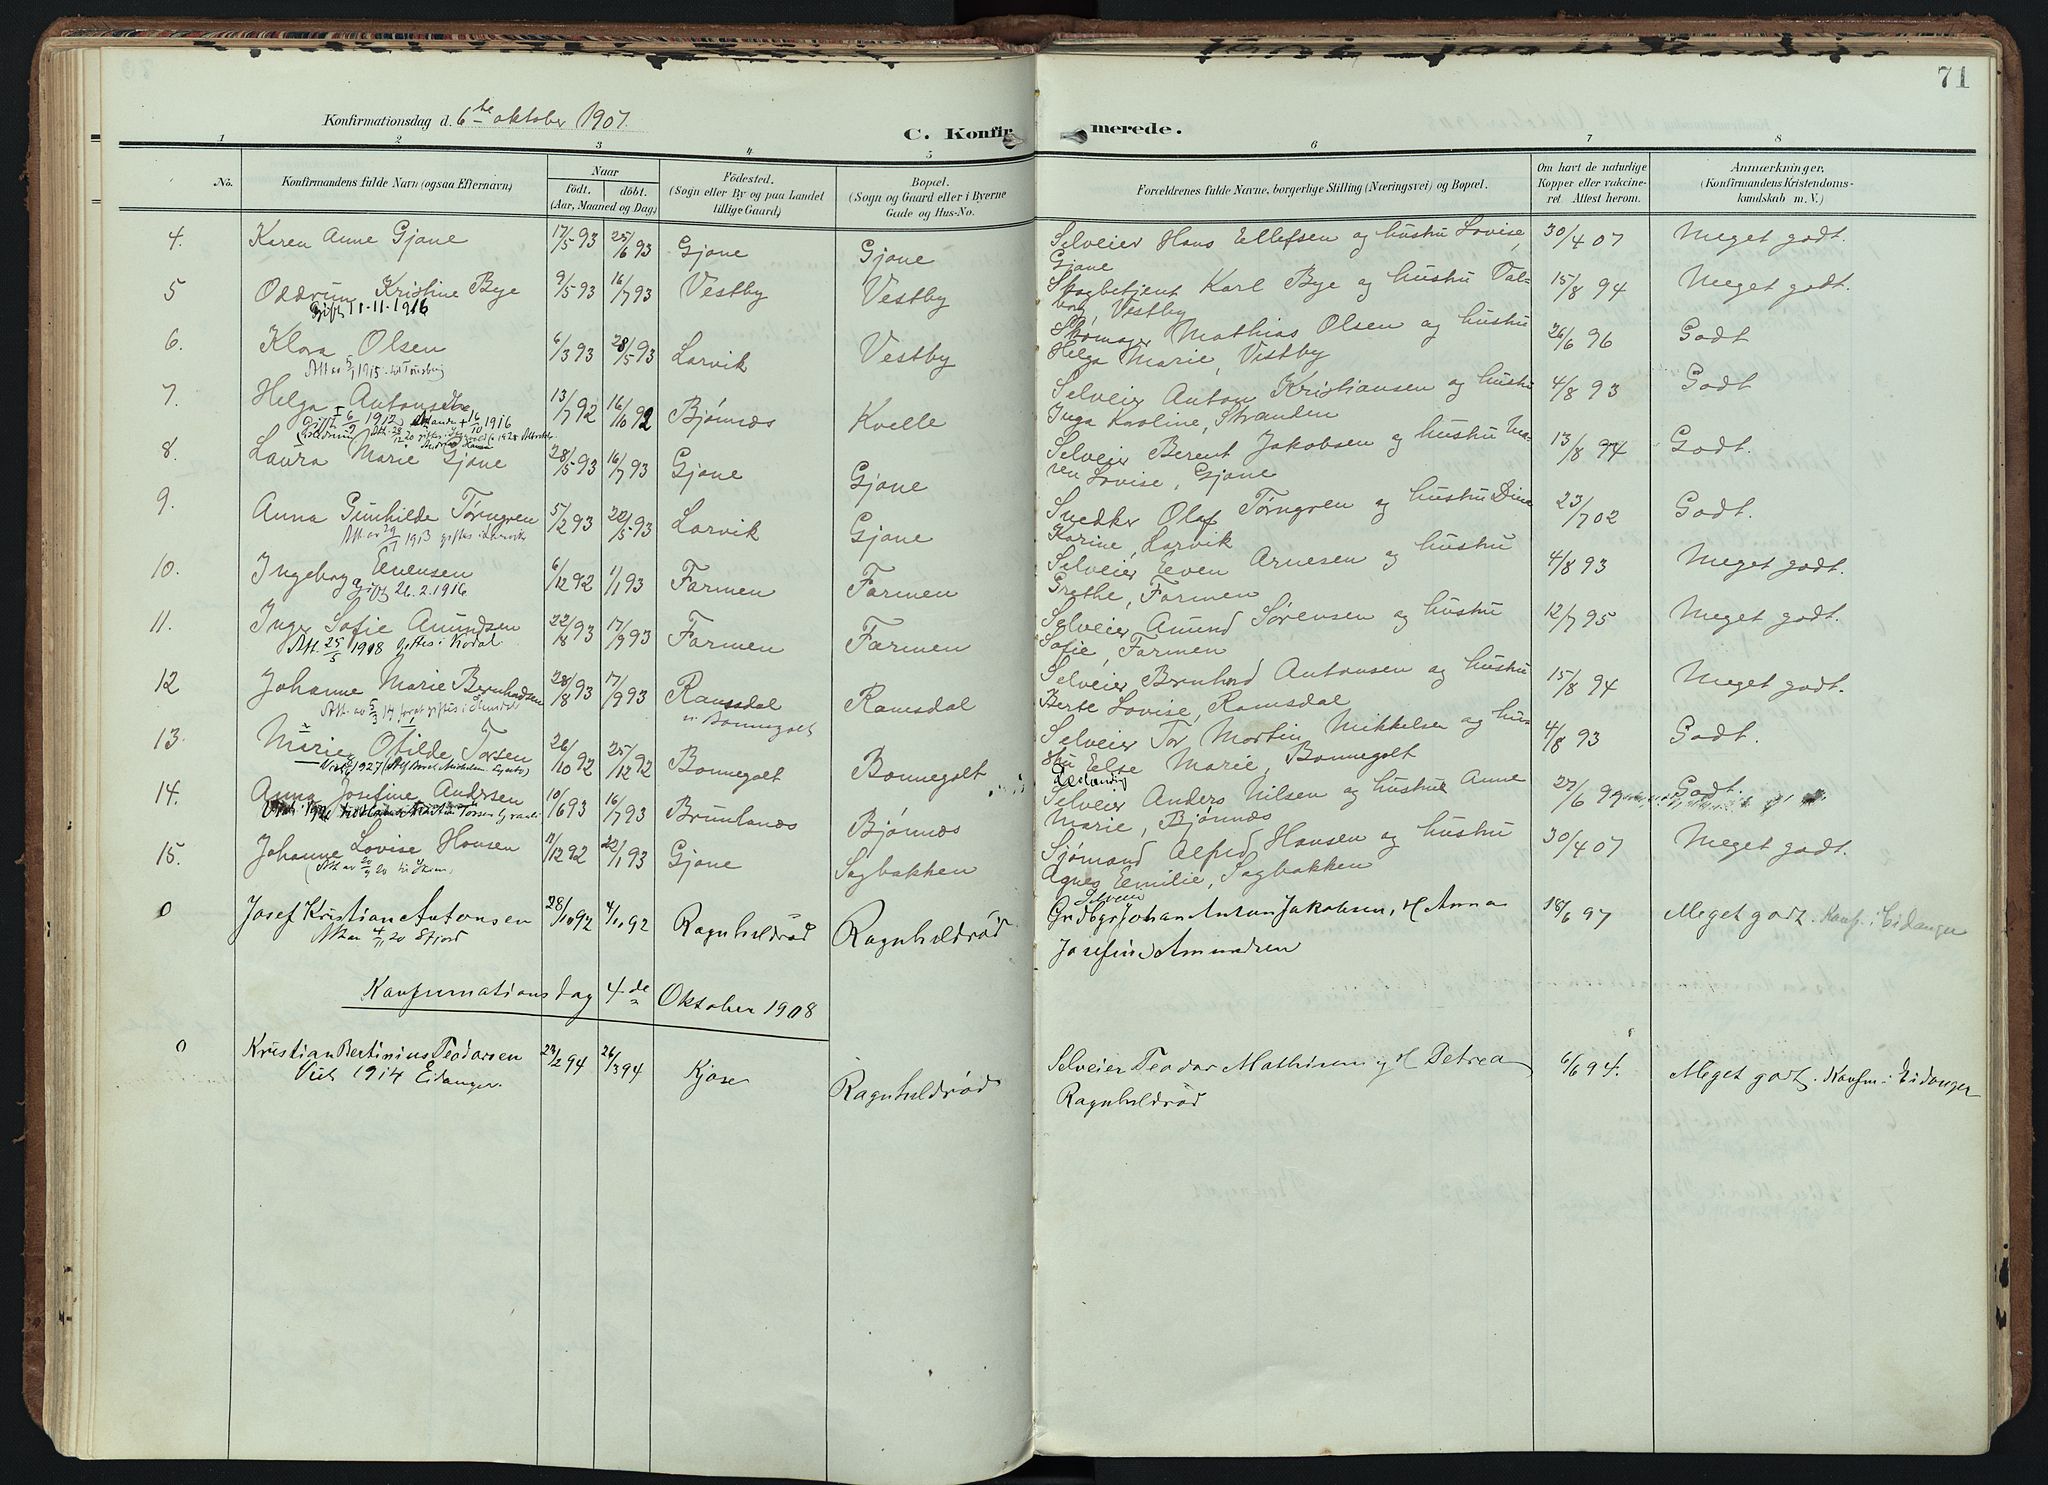 71
Konfirmationsdag d. 6te oktober 1907.
C. Konfirmerede.
1 2 3 4 5 6 7 8
No. Konfirmandens fulde Navn (ogsaa Efternavn) Naar födt. döbt. (Aar, Maaned og Dag) Födested. (Sogn eller By og paa Landet tillige Gaard) Bopæl. (Sogn og Gaard eller i Byerne Gade og Hus-No. Forældrenes fulde Navne, borgerlige Stilling (Næringsvei) og Bopæl. Om havt de naturlige Kopper eller vakcineret. Attest herom. Anmærkninger, (Konfirmandens Kristendomskundskab m. V.)
4. Karen Anne Gjone 17/5 93 25/6 93 Gjone Gjone Selveier Hans Ellefsen og hustru Lovise, 30/4 07 Meget godt.
Gjone
5 Oddrun Kristine Bye 9/5 93 16/7 93 Vestby Vestby Skogbetjent Karl Bye og hustru Val- 15/8 94 Meget godt.
Gift 11-11-1916 borg, Vestby
6. Klara Olsen 6/3 93 28/5 93 Larvik Vestby Skomager Mathias Olsen og hustru 26/6 96 Godt
Helga Marie, Vestby
7. Helga Antonsen 13/7 92 16/10 92 Bjønnes Kvelle Selveier Anton Kristiansen og hustru 4/8 93 Godt
Inga Karoline, Stranden
8. Laura Marie Gjone 28/5 93 16/7 93 Gjone Gjone Selveier Berent Jakobsen og hustru Ma- 13/8 94 Godt.
ren Lovise, Gjone
9. Anna Gunhilde Törngren 5/2 93 22/5 93 Larvik Gjone Snedker Olaf Törngren og hustru Dina 23/7 02 Godt.
Att. av 29/7 1913 giftes i Larvik Karine, Larvik
10. Ingeborg Evensen 6/12 92 1/1 93 Farmen Farmen Selveier Even Arnesen og hustru 4/8 93 Meget godt.
gift 26.2.1916 Grethe, Farmen
11. Inger Sofie Amundsen 22/8 93 17/9 93 Farmen Farmen Selveier Amund Sörensen og hustru 12/7 95 Meget godt.
Att. 25/5 1918 giftes i Kodal Sofie, Farmen
12 Johanne Marie Bernhardsen 28/8 93 17/9 93 Ramsdal Ramsdal Selveier Bernhard Antonsen og hustru 15/8 94 Meget godt.
u. Bonnegolt Berte Lovise, Ramsdal
13. Marie Otilde Torsen 26/10 92 25/12 92 Bonnegolt Bonnegolt Selveier Tor Martin Mikkelsen og hu- 4/8 93 Godt.
stru Else Marie, Bonnegolt
14. Anna Josefine Andersen 10/6 93 16/7 93 Brunlanæs Bjønnes Selveier Anders Nilsen og hustru Anne 27/6 99 Godt.
Marie, Bjønnes
15. Johanne Lovise Hansen 11/12 92 22/1 93 Gjone Sagbakken Sjømand Alfred Hansen og hustru 30/4 07 Meget godt.
Agnes Emilie, Sagbakken
0 Josef Kristian Antonsen 28/10 92 4/11 92 Ragnhildrød Ragnhildrød Selveier Johan Anton Jakobsen, H Anna 18/6 97 Meget godt. Konf. i Eidanger
Josefine Amundsen
Konfirmationsdag 4de Oktober 1908
0 Kristian Bertinius Teodorsen 24/2 94 26/3 94 Kjose Ragnhildrød Selveier Teodor Mathisen og H Petrea 6/6 94. Meget godt. Konfm. i Eidanger
Viet 1914 Eidanger. Ragnhildrød